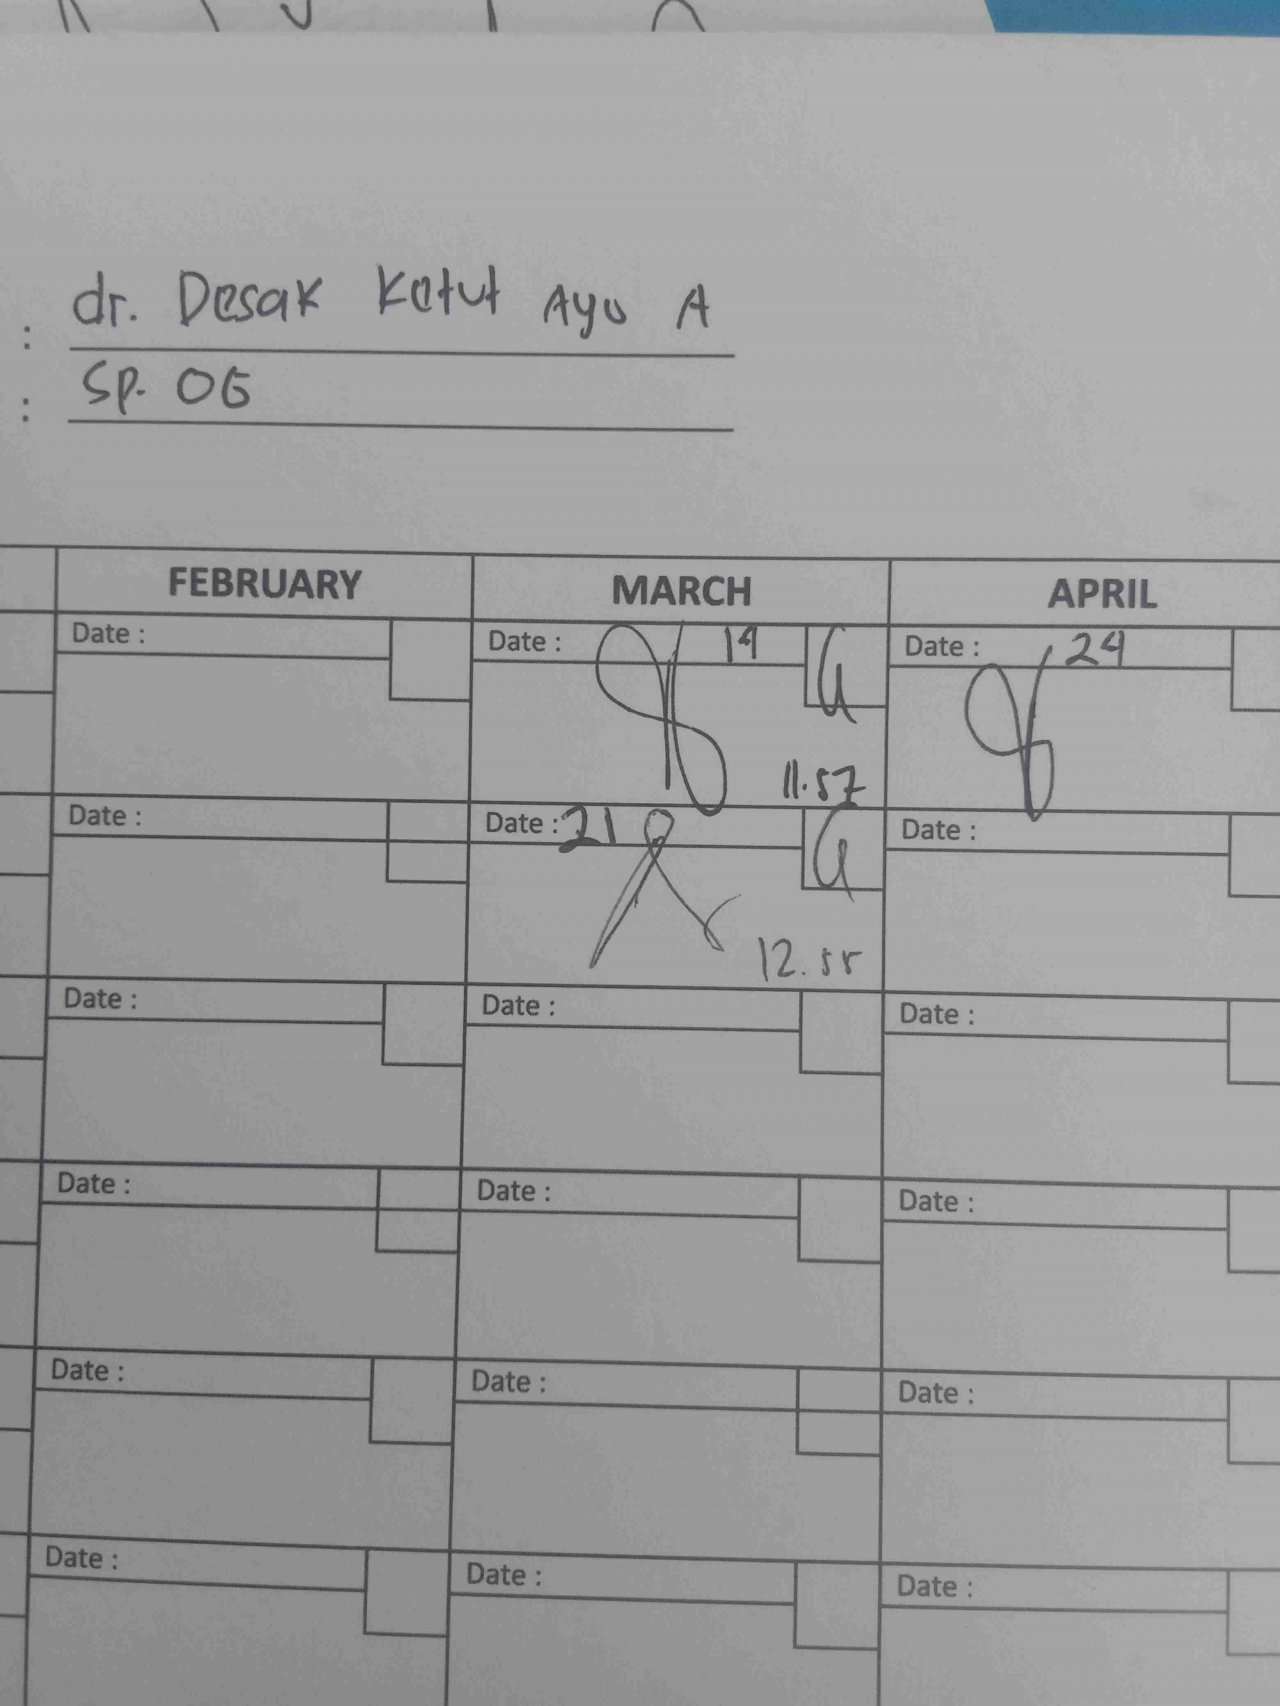 : dr. Desak Ketut Ayu A
: Sp. OG
FEBRUARY MARCH APRIL
Date : Date : 19 Date : 24
11.57
Date : Date : 21 Date :
12.55
Date : Date : Date :
Date : Date : Date :
Date : Date : Date :
Date : Date : Date :